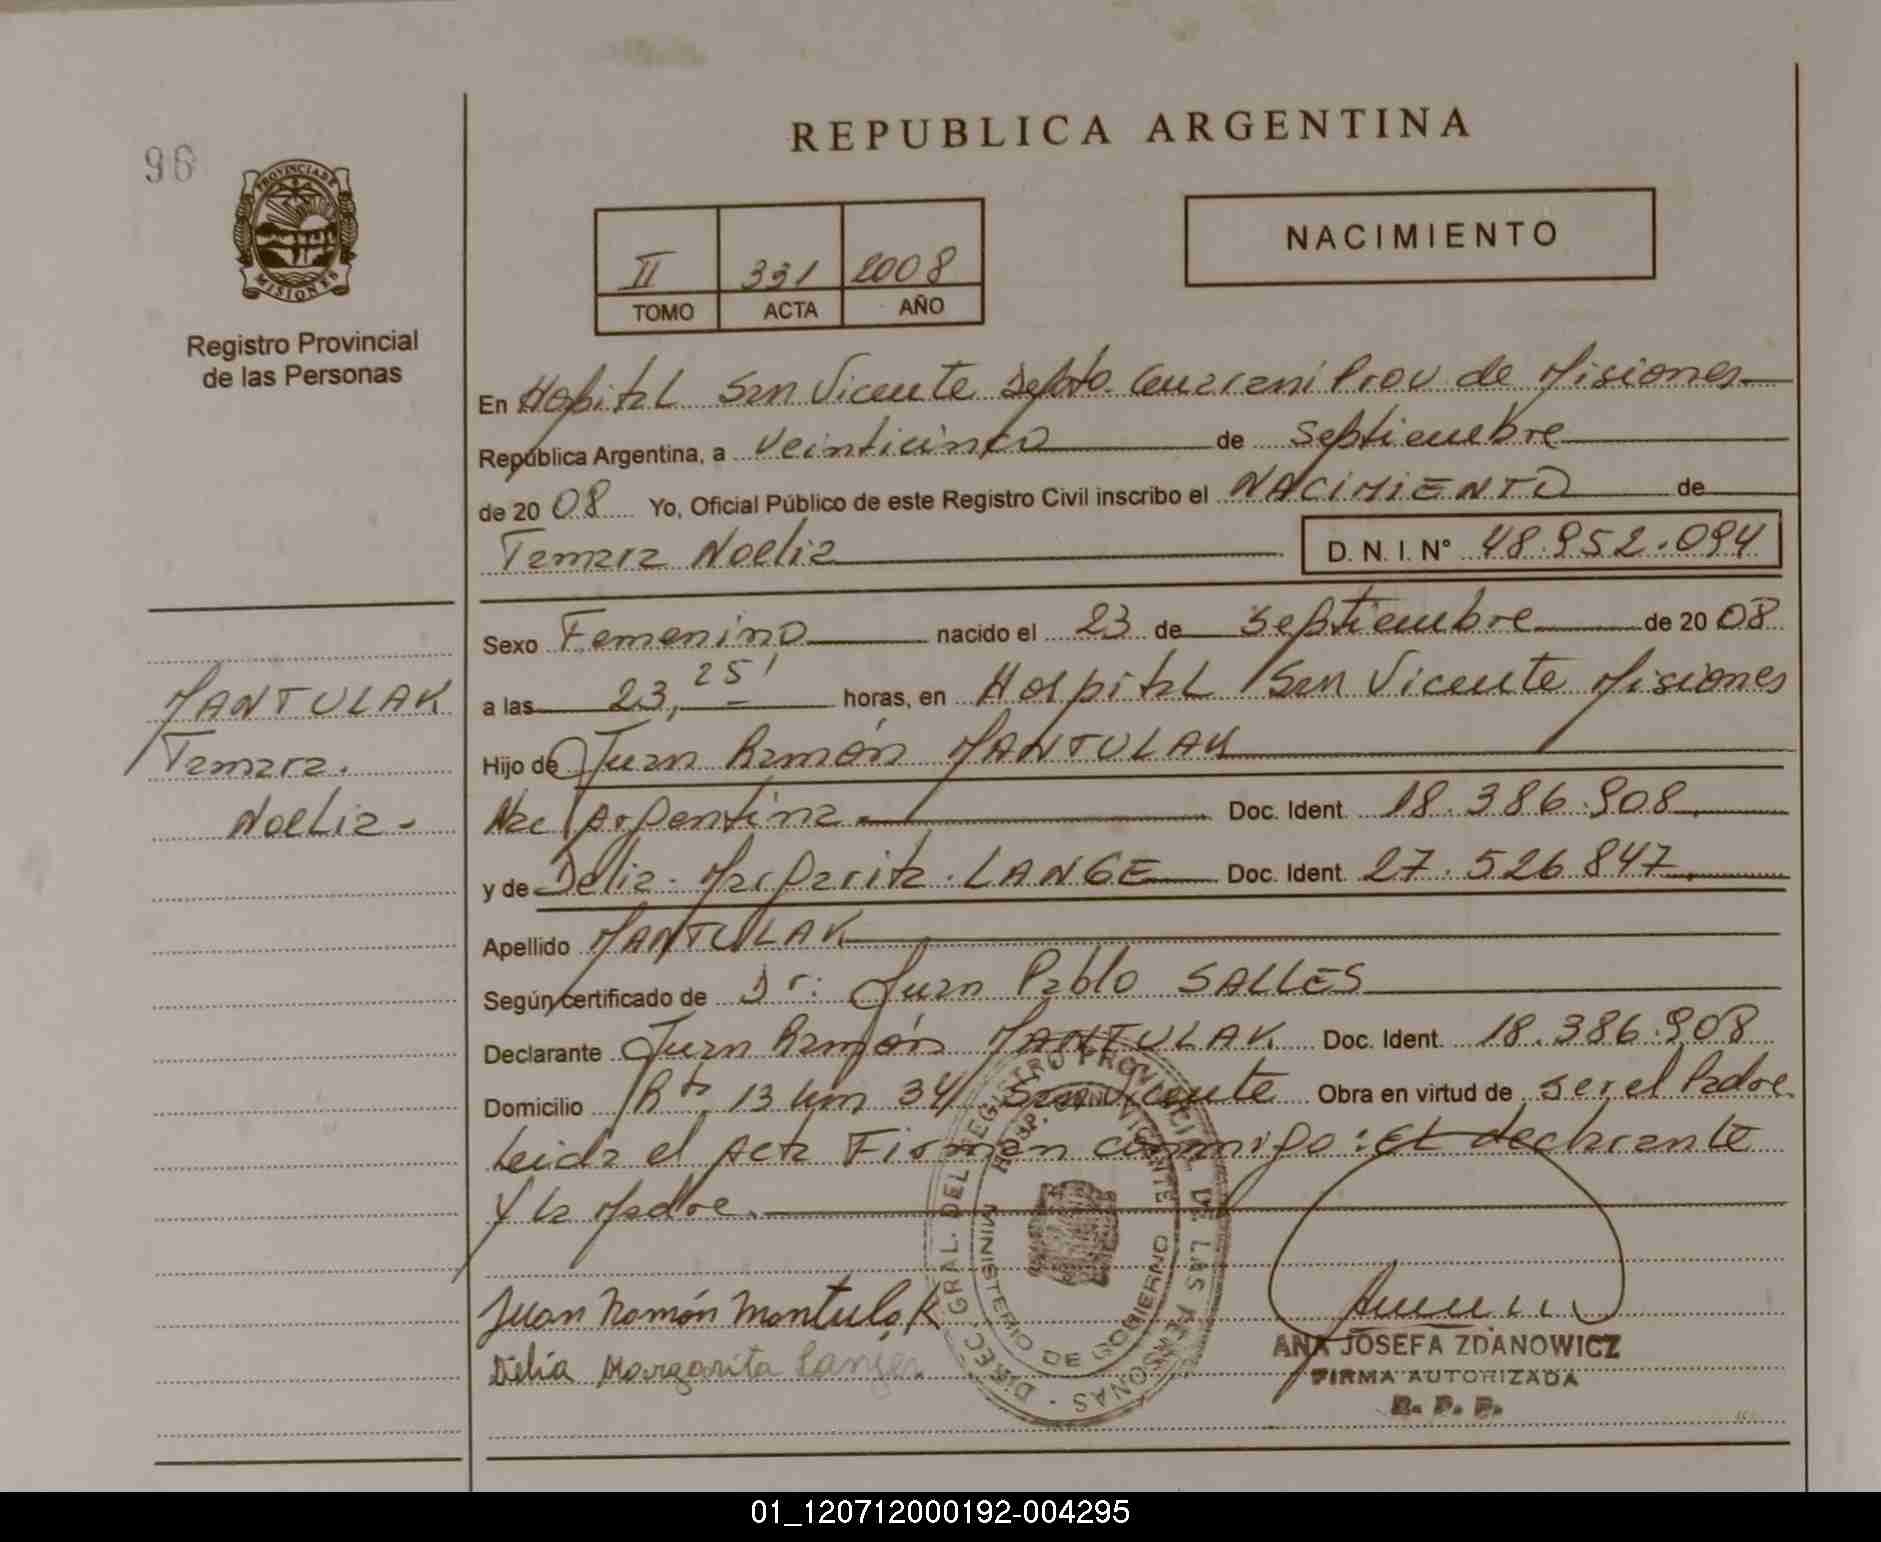 REPUBLICA ARGENTINA
96
PROVINCIA DE
MISIONES
Registro Provincial
de las Personas
II 331 2008
TOMO ACTA AÑO
NACIMIENTO
En Hospital San Vicente Depto. Guarani Prov de Misiones
República Argentina, a veinticinco de septiembre
de 20 08 Yo, Oficial Público de este Registro Civil inscribo el NACIMIENTO de
Tamara Noelia D. N. I. Nº 48.952.094
Sexo Femenino nacido el 23 de septiembre de 20 08
a las 23, 25' horas, en Hospital San Vicente Misiones
Hijo de Juan Ramón MANTULAK
Nac Argentina Doc. Ident. 18.386.908
y de Delia Margarita LANGE Doc. Ident. 27.526.847
Apellido MANTULAK
Según certificado de Dr: Juan Pablo SALLES
Declarante Juan Ramón MANTULAK Doc. Ident. 18.386.908
Domicilio Rta 13 km 34 San Vicente Obra en virtud de ser el Padre
Leida el Acta Firman conmigo: El declarante
y la Madre.
MANTULAK
Tamara.
Noelia-
Juan Ramón Mantulak
Delia Margarita
DIREC. GRAL. DEL REGISTRO PROVINCIAL DE LAS PERSONAS
HOSP. SAN VICENTE
MINISTERIO DE GOBIERNO
ANA JOSEFA ZDANOWICZ
FIRMA AUTORIZADA
R. P. P.
01_120712000192-004295